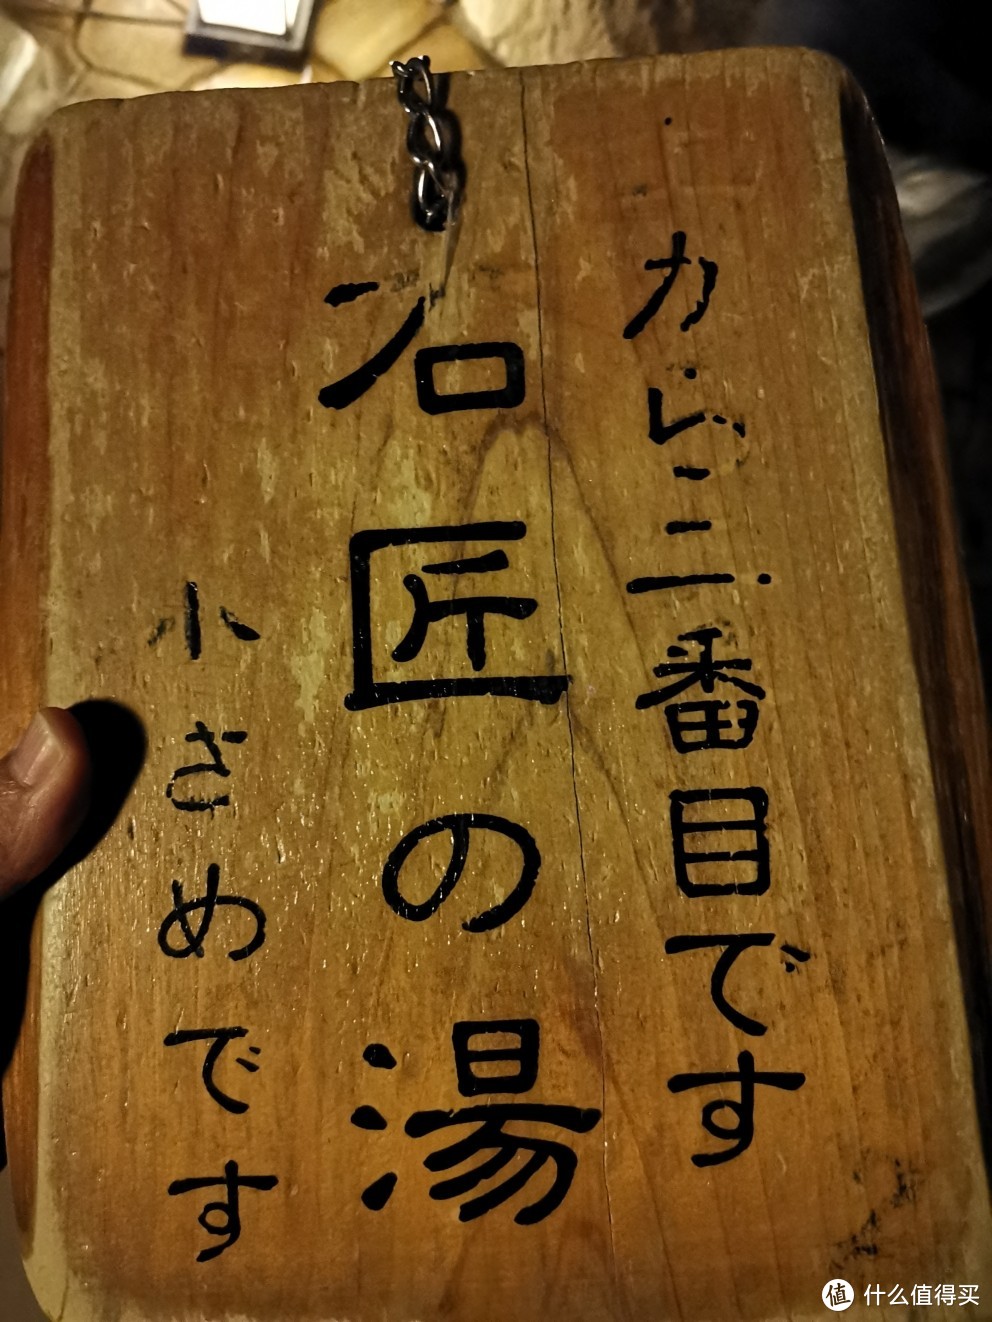 から二番目です
石匠の湯
小さめです
值 什么值得买